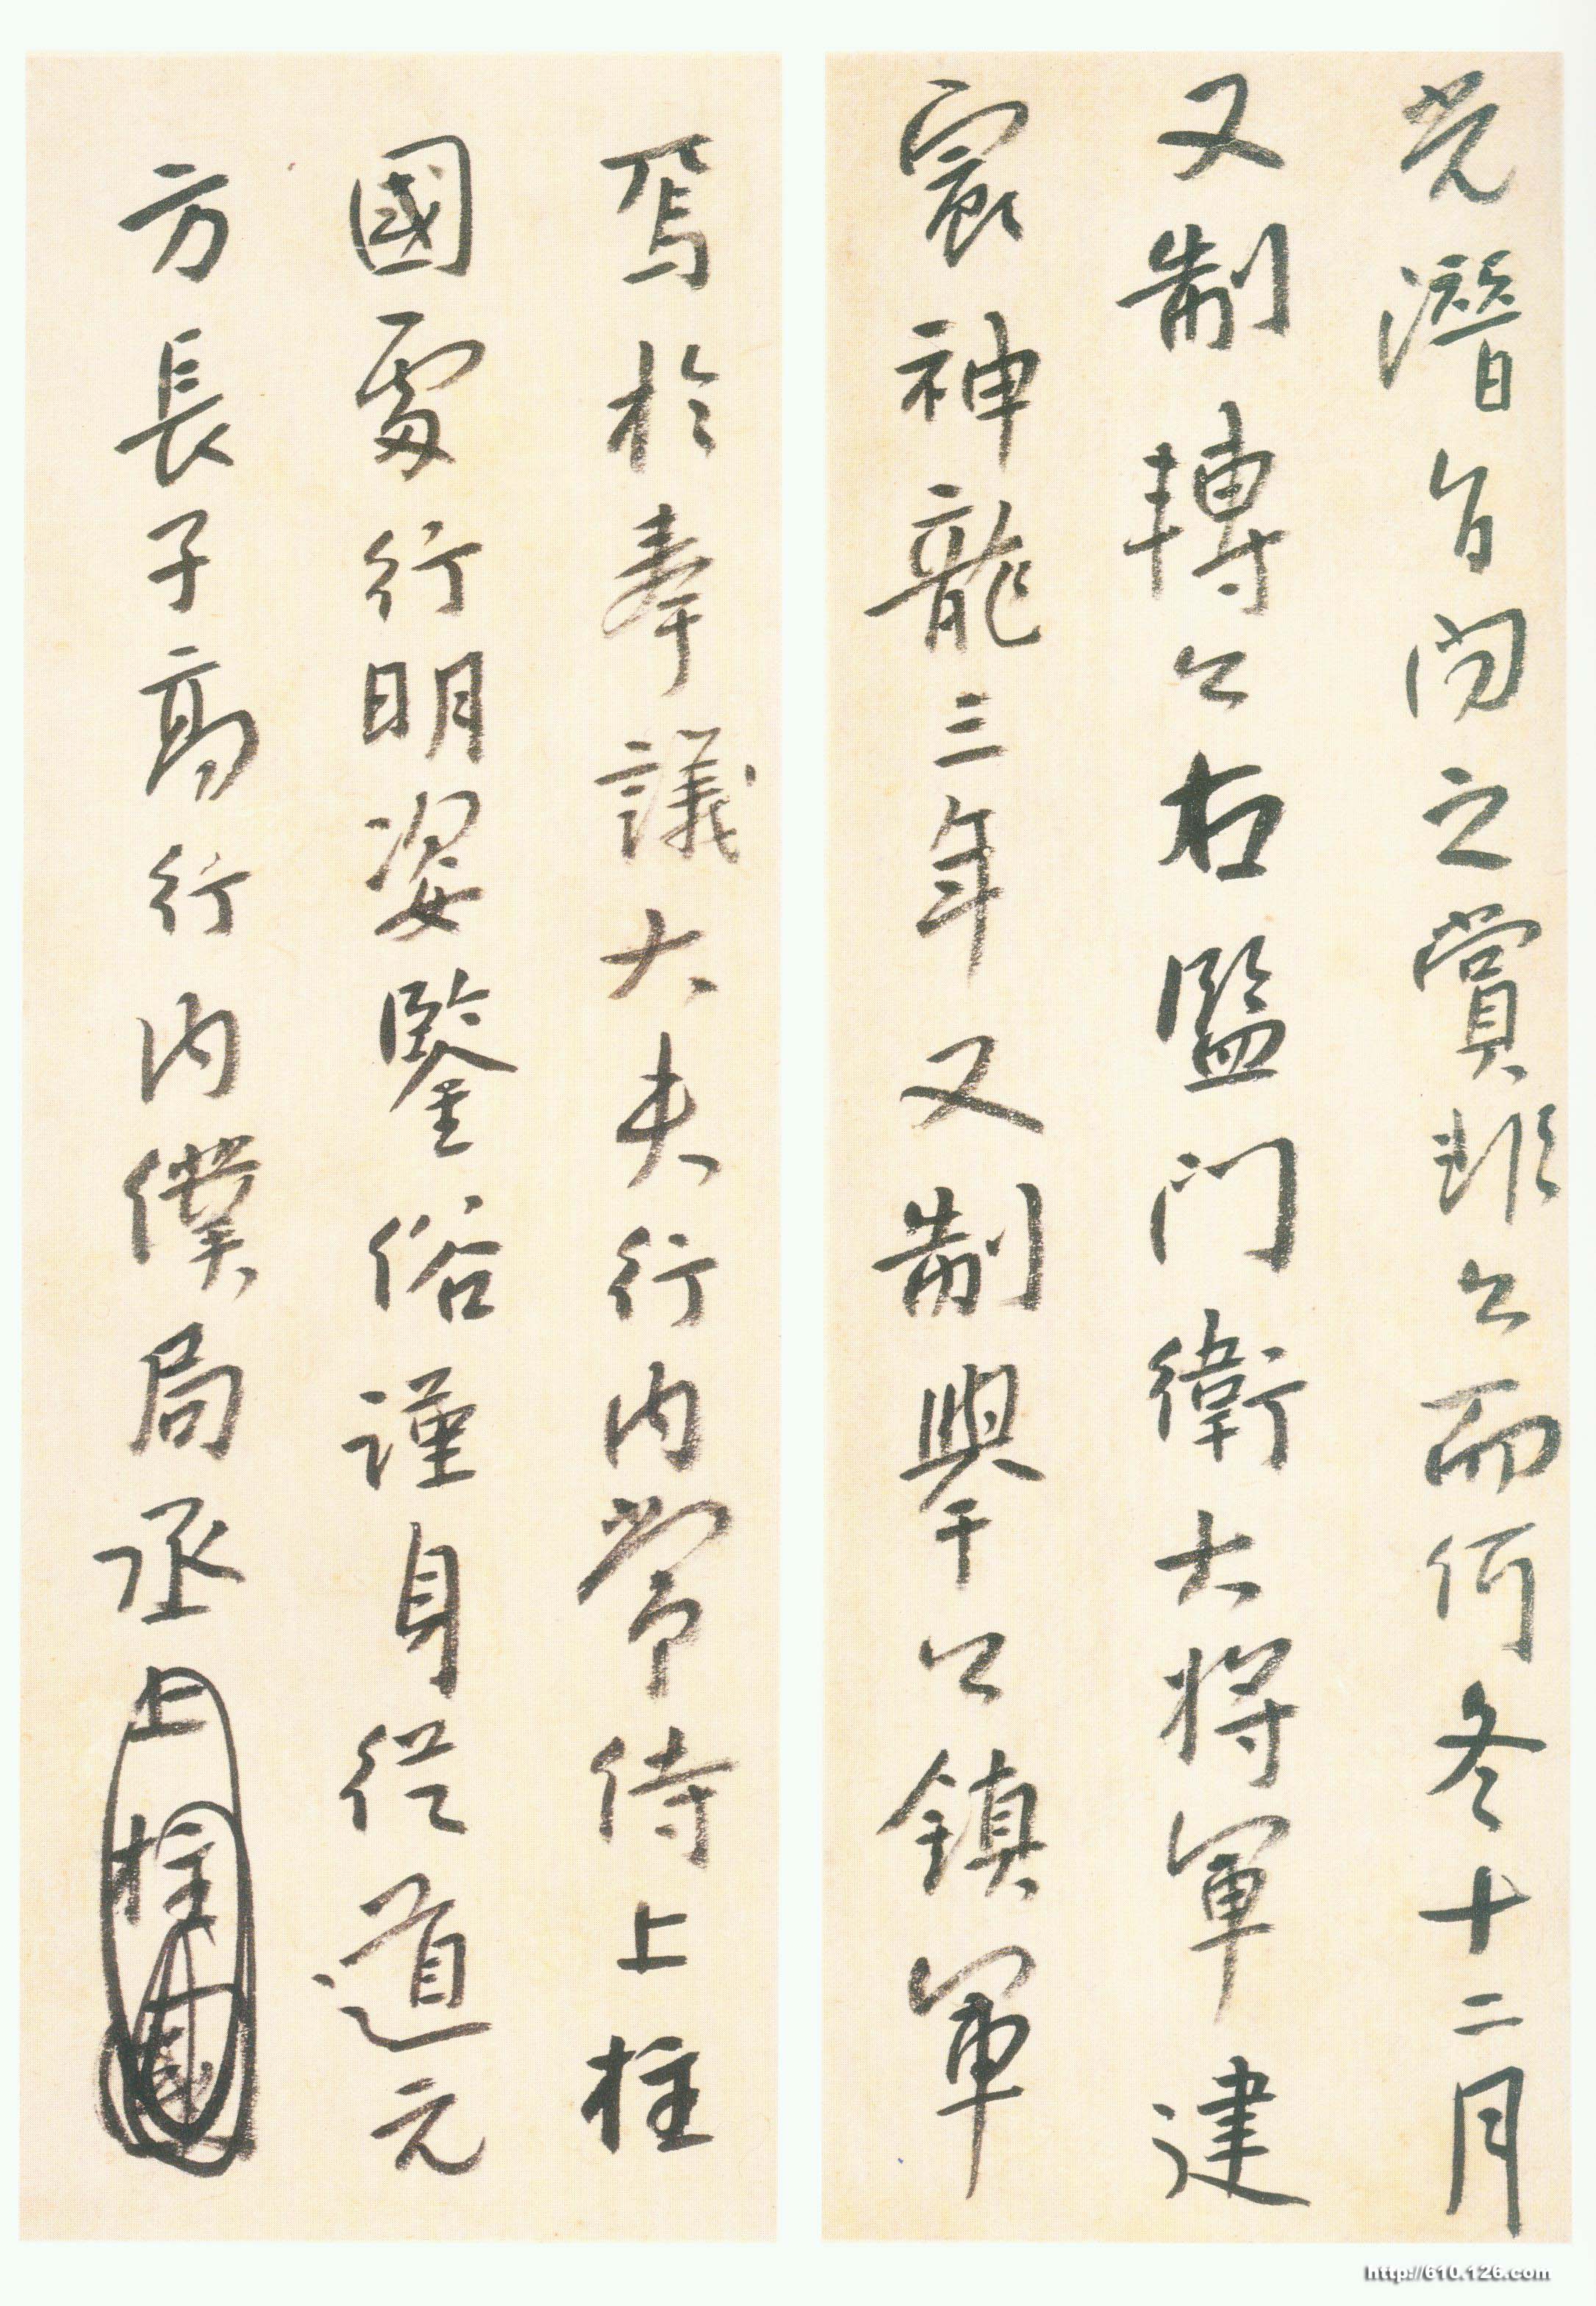 光潛旨之賞非公而何冬十二月
又制轉公右監門衛大將軍建
寰神龍三年又制舉公鎮軍
焉於奉議大夫行内常侍上柱
國處行明姿鑒俗謹身從道元
方長子高行内僕局丞上柱國
http://610.126.com